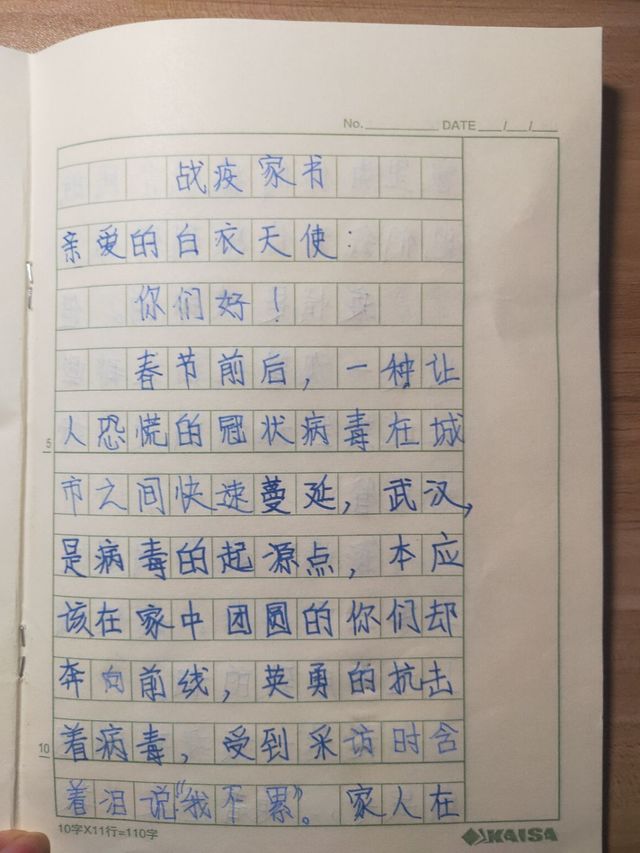 No. DATE / /
战疫家书
亲爱的白衣天使：
你们好！
春节前后，一种让
5
人恐慌的冠状病毒在城
市之间快速蔓延，武汉，
是病毒的起源点，本应
该在家中团圆的你们却
奔向前线，英勇的抗击
10
着病毒，受到采访时含
着泪说“我不累”。家人在
10字X11行=110字
KAISA